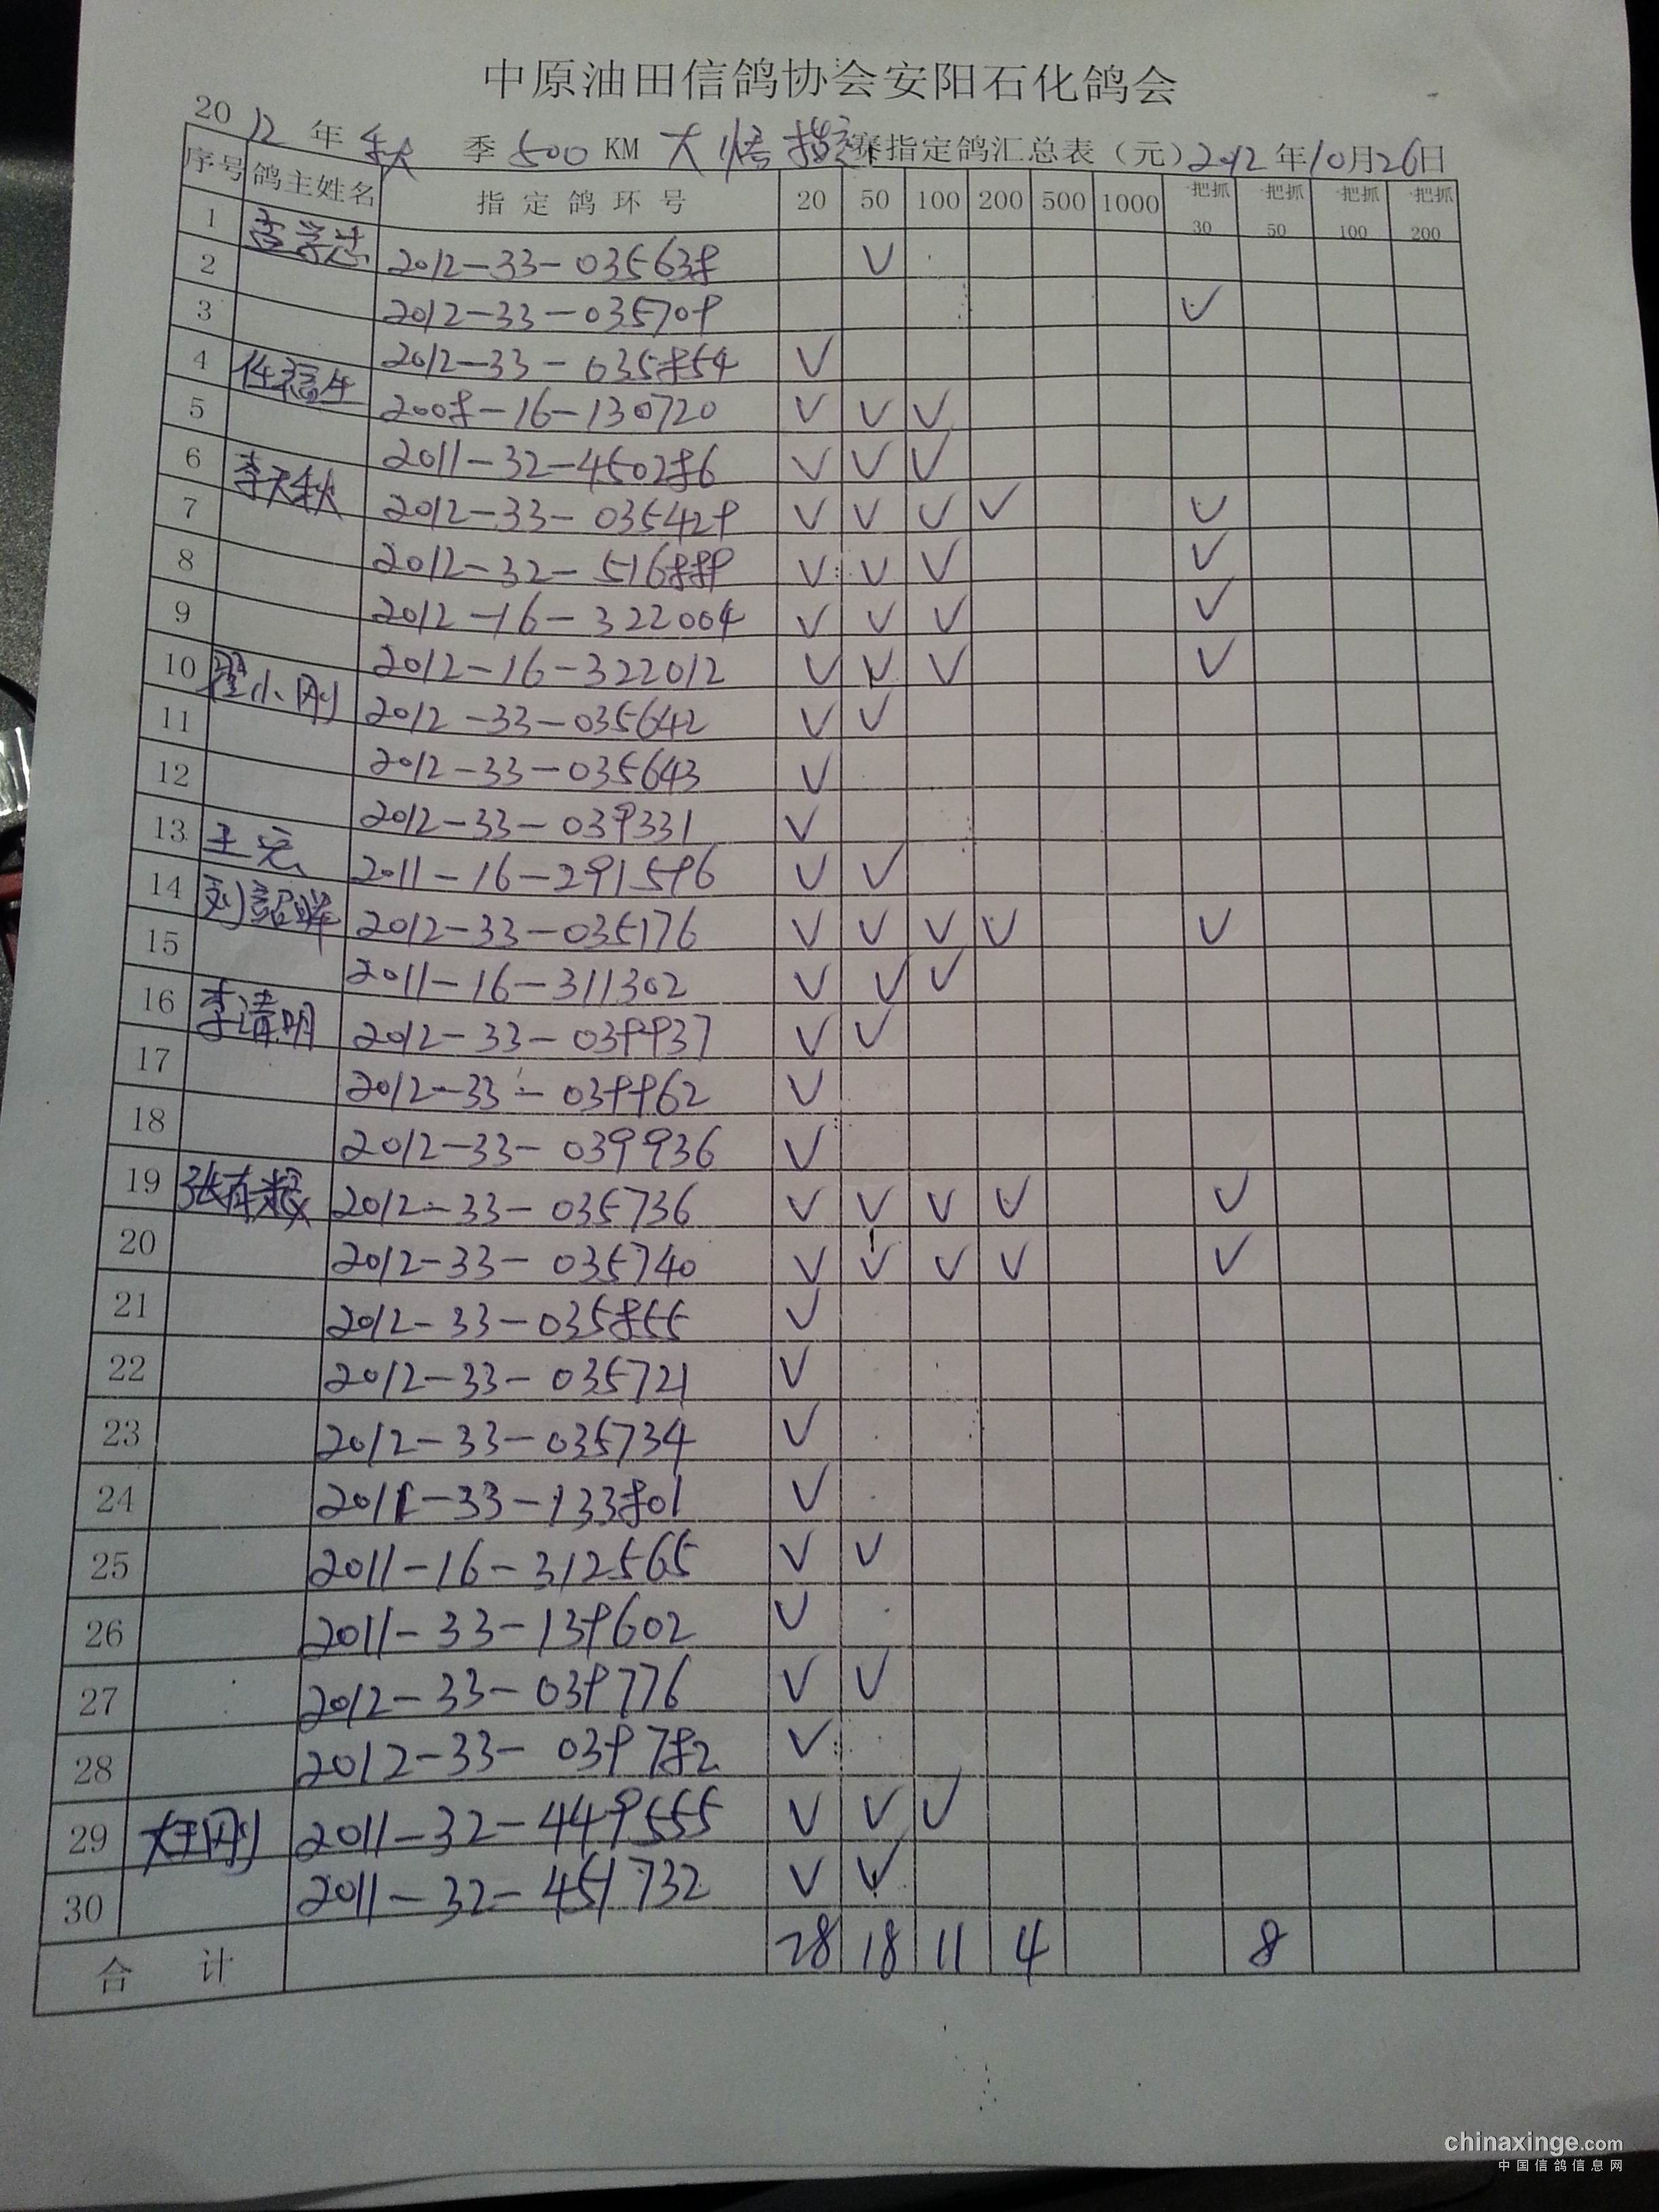 中原油田信鸽协会安阳石化鸽会
2012年秋季500KM大悟指定赛指定鸽汇总表（元）2012年10月26日
序号 鸽主姓名 指定鸽环号 20 50 100 200 500 1000 一把抓30 一把抓50 一把抓100 一把抓200
1 2012-33-035638 V
2 2012-33-035709 V
3 2012-33-035854 V
4 任福生 2008-16-130720 V V V
5 2011-32-450286 V V V
6 李天秋 2012-33-035429 V V V V V
7 2012-32-516889 V V V V
8 2012-16-322004 V V V V
9 2012-16-322012 V V V V
10 翟小刚 2012-33-035642 V V
11 2012-33-035643 V
12 2012-33-039331 V
13 王宏 2011-16-291596 V V
14 刘韶晖 2012-33-035176 V V V V V
15 2011-16-311302 V V V
16 李清明 2012-33-039937 V V
17 2012-33-039962 V
18 2012-33-039936 V
19 张有粮 2012-33-035736 V V V V V
20 2012-33-035740 V V V V V
21 2012-33-035855 V
22 2012-33-035721 V
23 2012-33-035734 V
24 2011-33-133801 V
25 2011-16-312565 V V
26 2011-33-139602 V
27 2012-33-039776 V V
28 2012-33-039782 V
29 2011-32-449555 V V V
30 2011-32-451732 V V
合计 28 18 11 4 8
chinaxinge.com
中国信鸽信息网